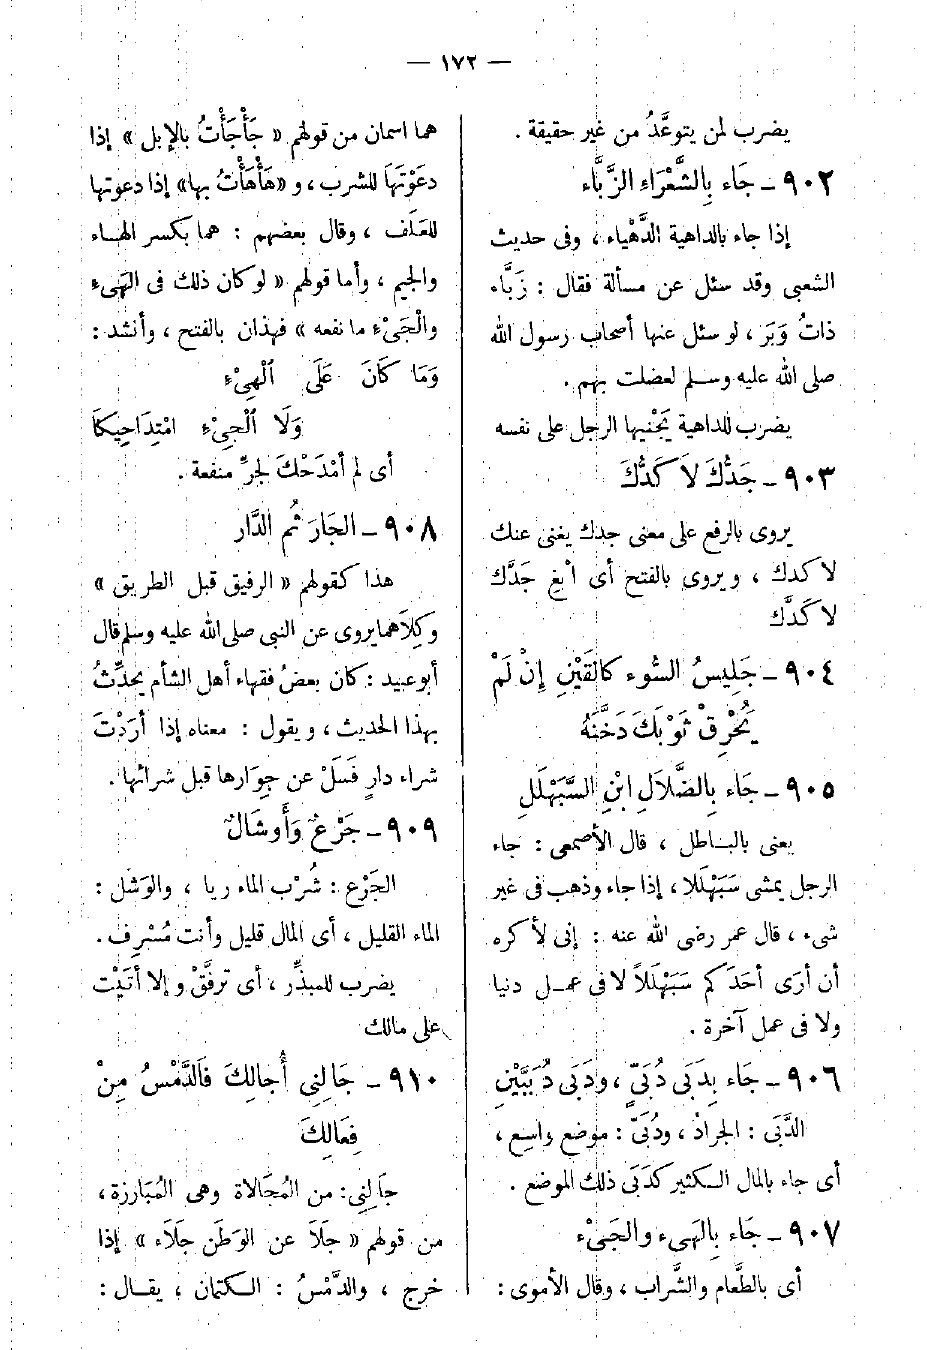 — ١٧٢ —
يضرب لمن يتوعَّدُ من غير حقيقة .
٩٠٢ – جَاء بِالشَّعْرَاءِ الزَّبَّاء
إذا جاء بالداهية الدَّهْياء ، وفى حديث
الشعبى وقد سئل عن مسألة فقال : زَبَّاء
ذاتُ وَبَر ، لو سئل عنها أصحاب رسول الله
صلى الله عليه وسلم لعضلت بهم .
يضرب للداهية يَجْنيها الرجل على نفسه
٩٠٣ – جَدُّكَ لاَ كَدُّكَ
يروى بالرفع على معنى جدك يغنى عنك
لا كدك ، ويروى بالفتح أى أبغِ جَدَّك
لا كَدَّك
٩٠٤ – جَلِيسُ السُّوء كالقَيْنِ إنْ لَمْ
يُحْرِقْ ثَوْبَكَ دَخَّنَهُ
٩٠٥ – جَاء بِالضَّلاَلِ ابْنِ السَّبَهْلَلِ
يعنى بالباطل ، قال الأصمعى : جاء
الرجل يمشى سَبَهْلَلا ، إذا جاء وذهب فى غير
شىء ، قال عمر رضى الله عنه : إنى لأكره
أن أرَى أحَدَكم سَبَهْلَلاً لا فى عمل دنيا
ولا فى عمل آخرة .
٩٠٦ – جَاء بِدَبَى دُبَىٍّ ، ودَبَى دُبَيَّيْنِ
الدَّبَى : الجرادُ ، ودُبَىّ : موضع واسِع ،
أى جاء بالمال الكثير كدَبَى ذلك الموضع .
٩٠٧ – جَاء بِالهَىء والجَىْء
أى بالطَّعام والشَّراب ، وقال الأموى :
هما اسمان من قولهم « جَأْجَأْتُ بالإبل » إذا
دعَوْتَهَا للشرب ، و «هَأْهَأْتُ بها» إذا دعوتها
للعَلَف ، وقال بعضهم : هما بكسر الهاء
والجيم ، وأما قولهم « لو كان ذلك فى الهَىءِ
والْجَىْءِ ما نفعه » فهذان بالفتح ، وأنشد :
وَمَا كَانَ عَلَى الْهِىْءِ
وَلَا الْجِىْءِ امْتِدَاحِيكَا
أى لم أمْدَحْكَ لجرِّ منفعة .
٩٠٨ – الجَارَ ثُم الدَّار
هذا كقولهم « الرفيق قبل الطريق »
وكِلاَهما يروى عن النبى صلى الله عليه وسلم قال
أبو عبيد : كان بعضُ فقهاء أهل الشأم يحدِّثُ
بهذا الحديث ، ويقول : معناه إذا أرَدْتَ
شراء دارٍ فَسَلْ عن جِوارها قبل شرائها .
٩٠٩ – جَرْعٌ وَأَوشَالٌ
الجَرْع : شُرْب الماء ريا ، والوَشَل :
الماء القليل ، أى المال قليل وأنت مُسْرِف .
يضرب للمبذِّر ، أى ترفَّقْ وإلا أتَيْت
على مالك
٩١٠ – جَالِنِى أُجالِكَ فَالدَّمْسُ مِنْ
فِعَالِكَ
جَالِنِى : من المُجَالاة وهى المُبَارزة ،
من قولهم « جَلَا عن الوَطَن جَلَاء » إذا
خرج ، والدَّمْسُ : الكتمان ، يقال :